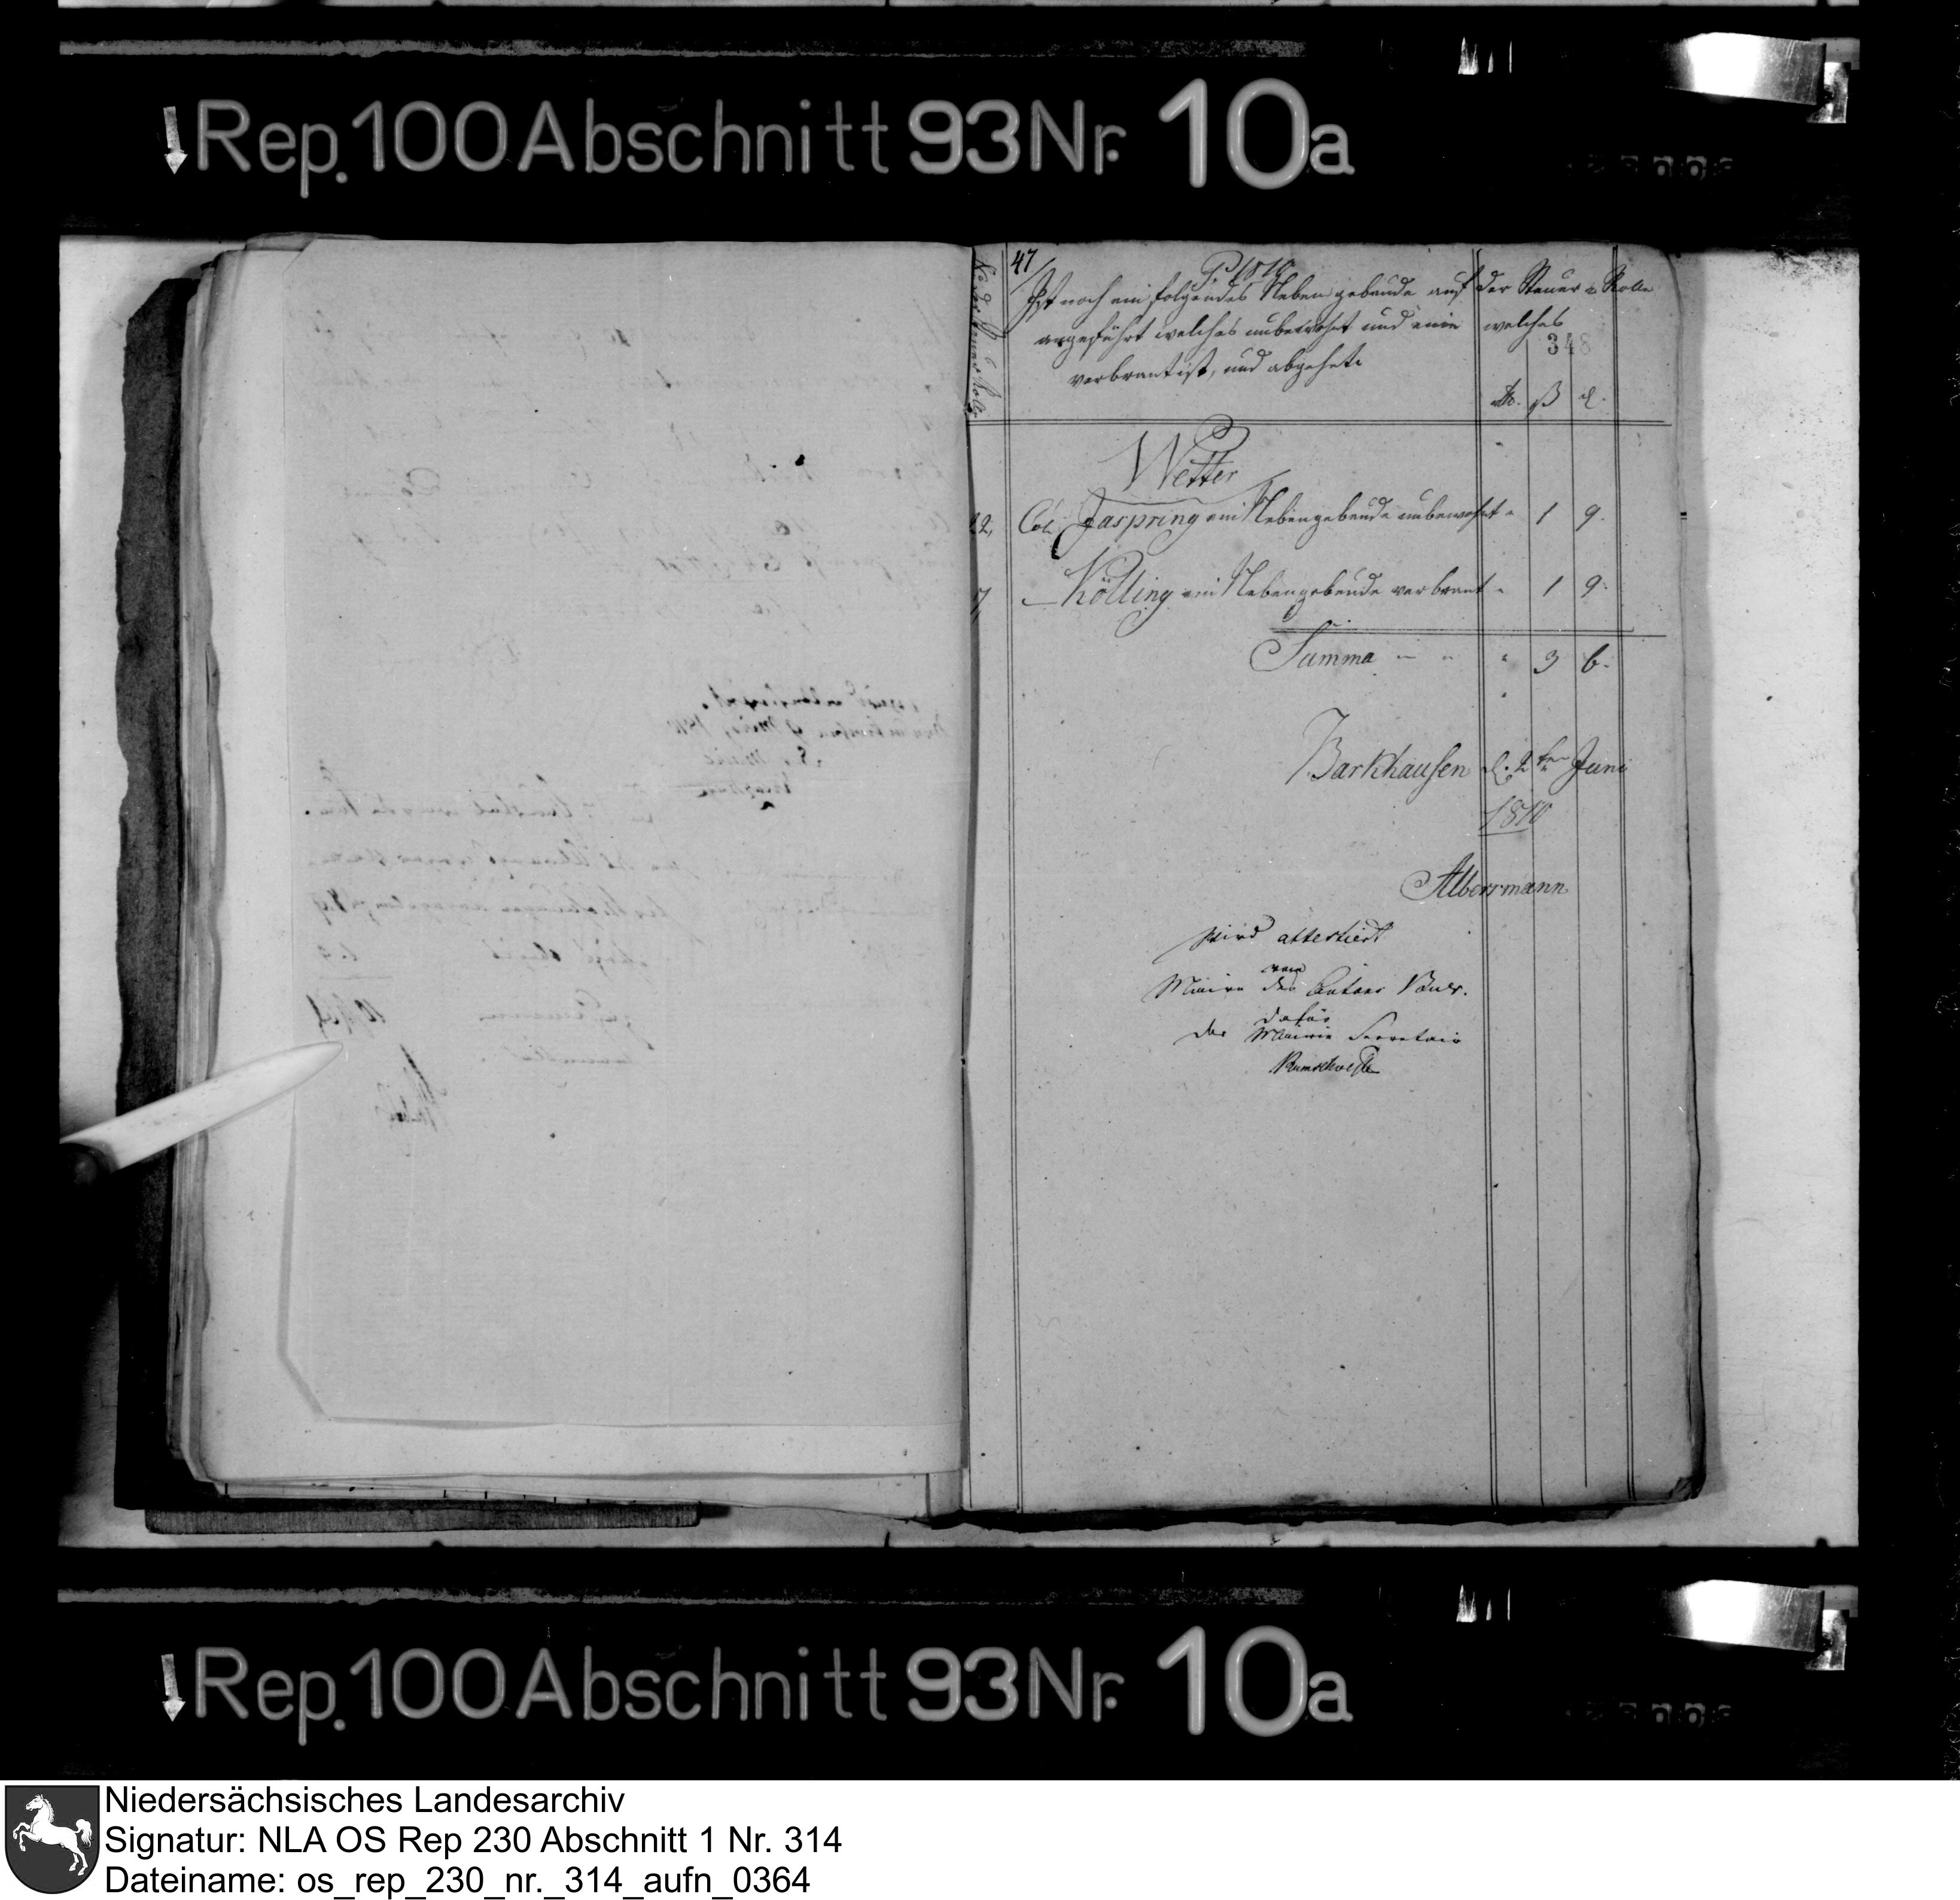 Rep. 100 Abschnitt 93 Nr. 10a
47
P 1810
Ist noch ein folgendes Nebengebeude auf der Steuer Rolle
angeführt welches unbewohnt und einie welches
348
verbrant ist, und abgehet
Rt. ß d.
No der Steuer Rolle
Wetter
22. Col. Jaspring ein Nebengebeude unbewohnt " 1 9.
7, — Kölling ein Nebengebeude verbrant " 1 9.
Summa " " " 3 6.
Barkhausen d. 2ten Juni
1810
Albersmann
Wird attestiert
Maire des Cantons Buer.
dafür
der Mairie Secretair
Rep. 100 Abschnitt 93 Nr. 10a
Niedersächsisches Landesarchiv
Signatur: NLA OS Rep 230 Abschnitt 1 Nr. 314
Dateiname: os_rep_230_nr._314_aufn_0364